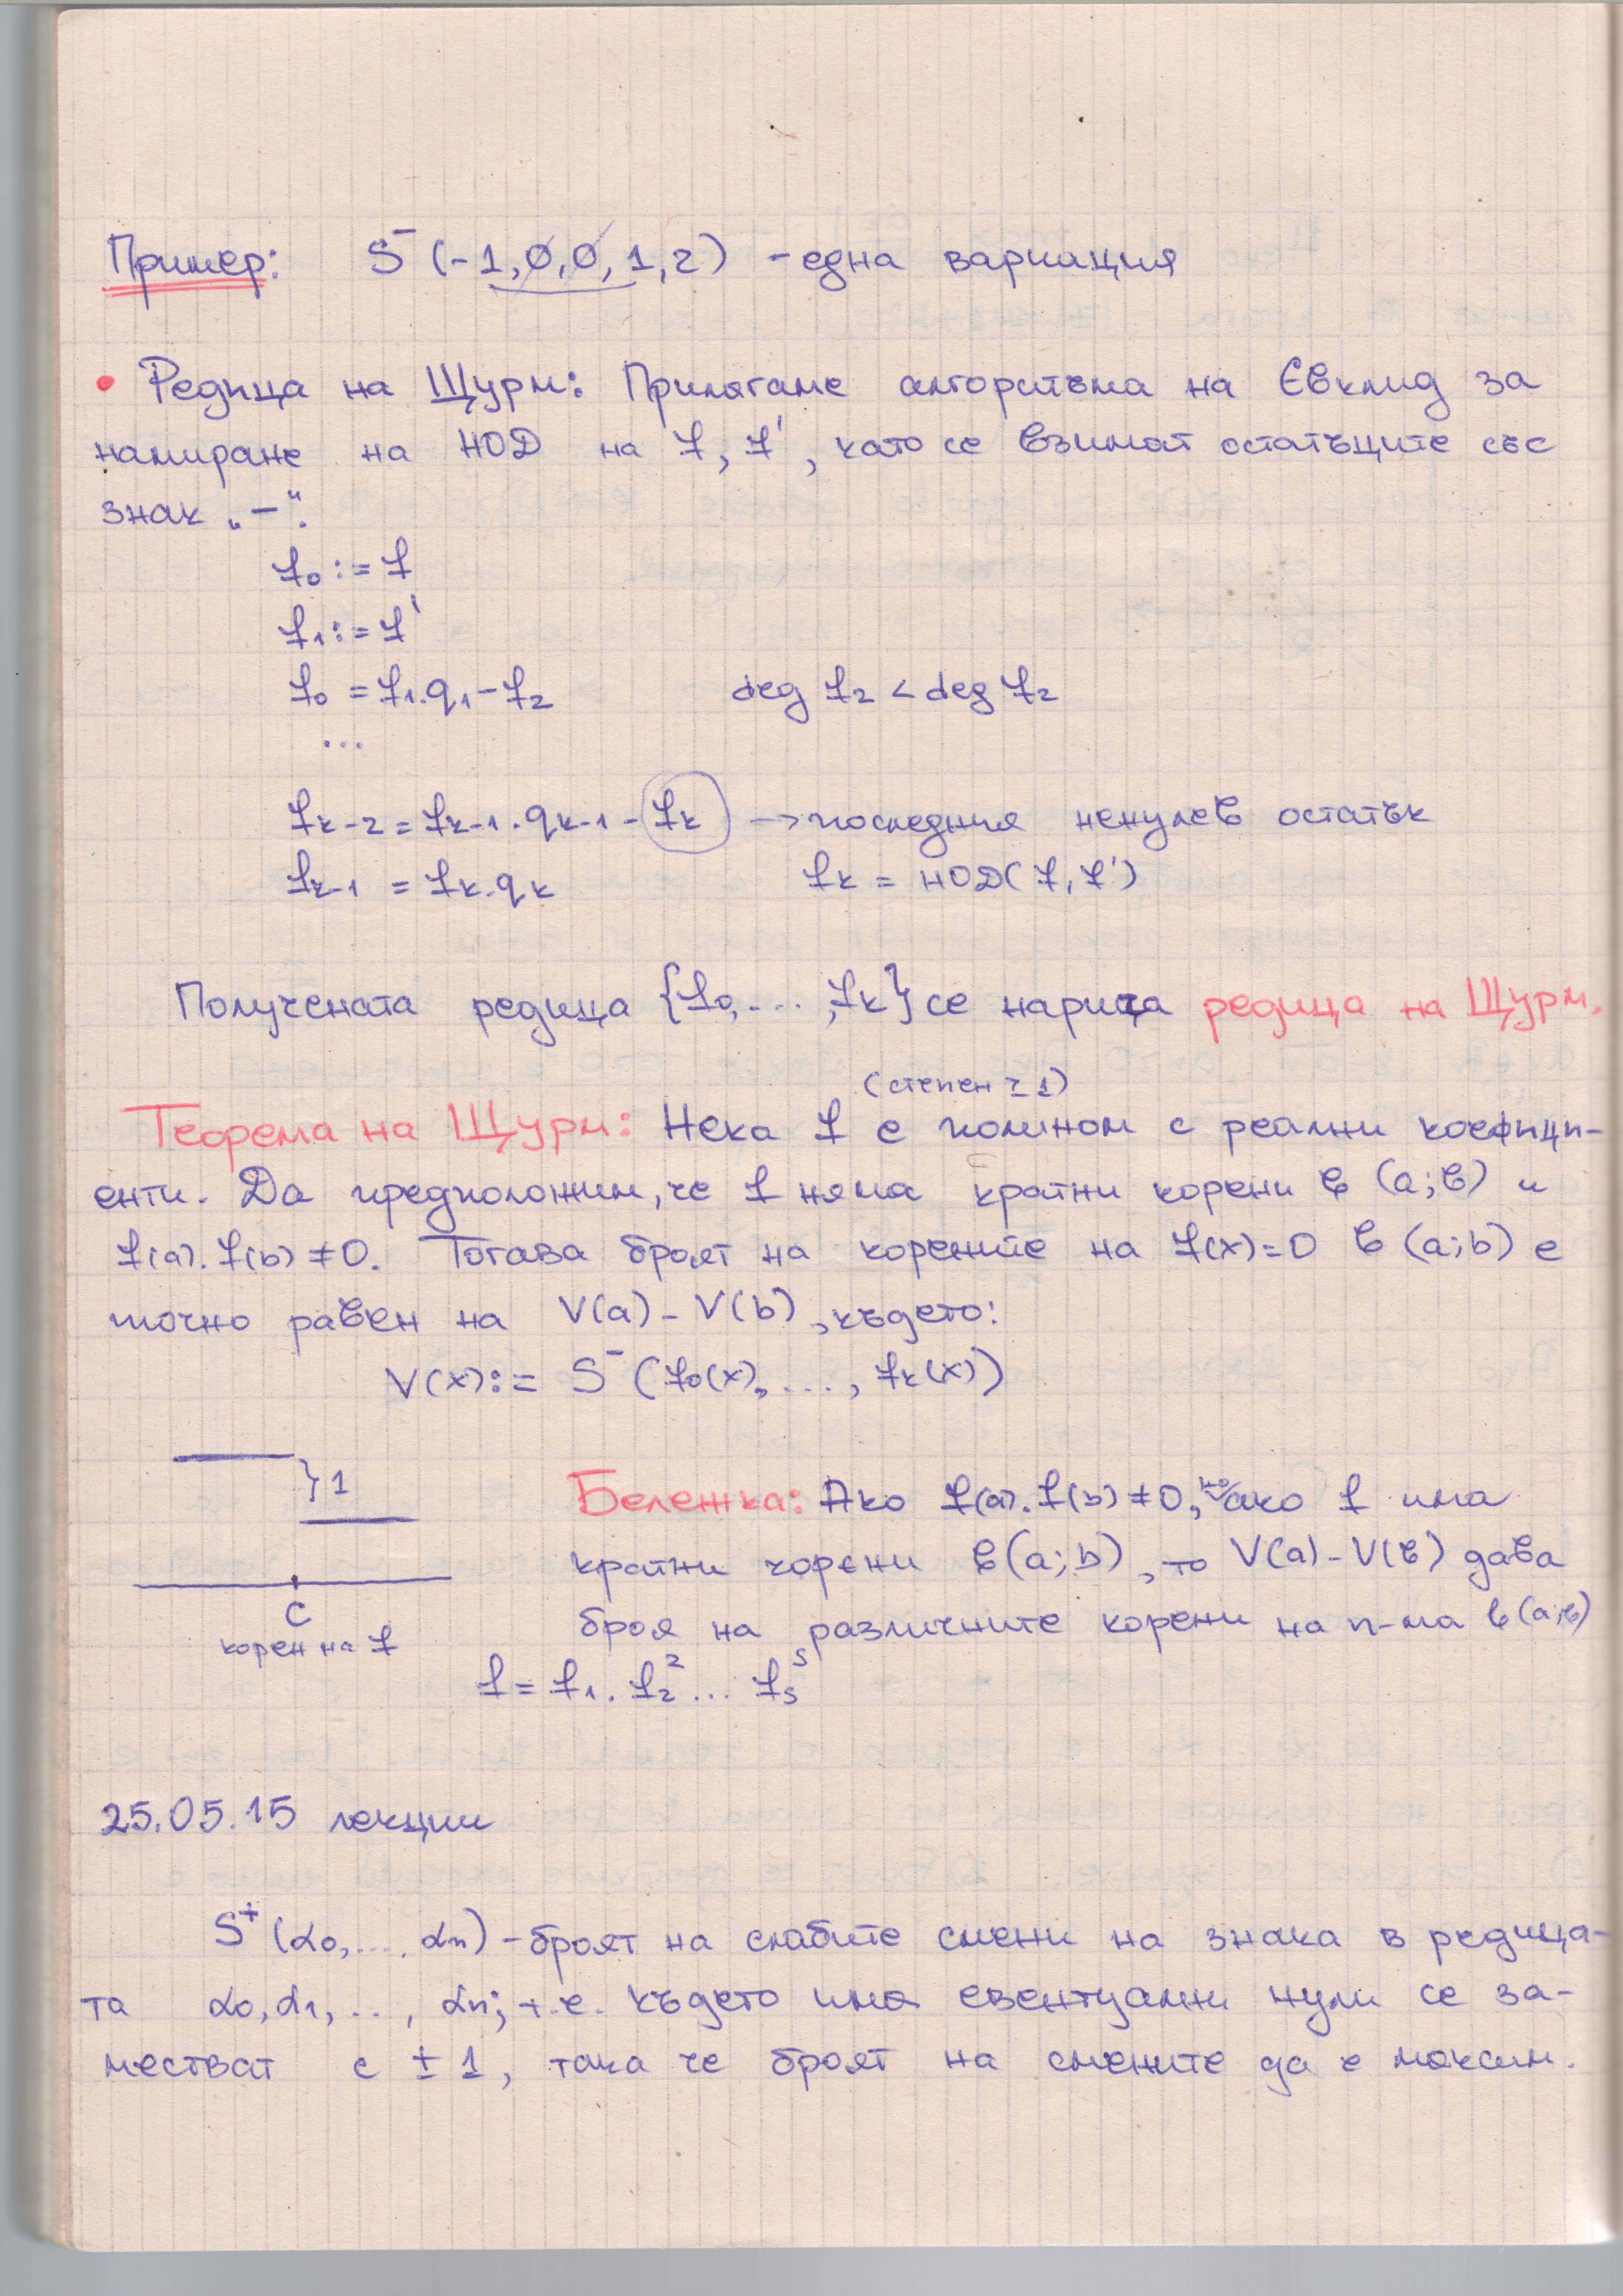 Пример: S⁻(-1,0,0,1,2) - една вариация
• Редица на Щурм: Прилагаме алгоритъма на Евклид за
намиране на НОД на f, f', като се взимат остатъците със
знак „-“.
f₀ := f
f₁ := f'
f₀ = f₁.q₁ - f₂ deg f₂ < deg f₂
...
fₖ₋₂ = fₖ₋₁.qₖ₋₁ - fₖ → последния ненулев остатък
fₖ₋₁ = fₖ.qₖ fₖ = НОД(f, f')
Получената редица {f₀, ..., fₖ} се нарича редица на Щурм.
(степен ≥ 1)
Теорема на Щурм: Нека f е полином с реални коефици-
енти. Да предположим, че f няма кратни корени в (a;b) и
f(a).f(b) ≠ 0. Тогава броят на корените на f(x)=0 в (a;b) е
точно равен на V(a) - V(b), където:
V(x) := S⁻(f₀(x), ..., fₖ(x))
}1
Бележка: Ако f(a).f(b) ≠ 0, но ако f има
кратни корени в (a;b), то V(a) - V(b) дава
c
броя на различните корени на п-ма в (a;b)
корен на f
f = f₁.f₂² ... fₛˢ
25.05.15 лекции
S⁺(α₀, ..., αₙ) - броят на слабите смени на знака в редица-
та α₀, α₁, ..., αₙ; т.е. където има евентуални нули се за-
местват с ± 1, така че броят на смените да е максим.